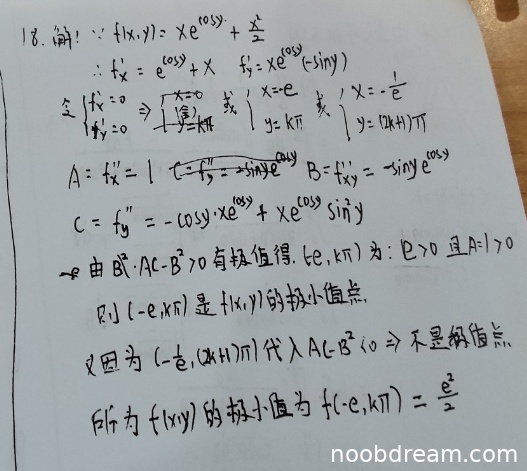 18. 解: ∵ f(x,y) = xe^{cosy} + x²/2
∴ f'x = e^{cosy} + x  f'y = xe^{cosy}(-siny)
令 { f'x = 0 f'y = 0 ⇒ { x=0 (舍) y=kπ 或 { x=-e y=kπ 或 { x=-1/e y=(2k+1)π
A = f''x = 1  C = f''y = -siny e^{cosy}  B = f''xy = -siny e^{cosy}
C = f''y = -cosy·xe^{cosy} + xe^{cosy} sin²y
由 B²·AC-B²>0 有极值得. (-e, kπ) 为: e²>0 且 A=1>0
则 (-e, kπ) 是 f(x,y) 的极小值点.
又因为 (-1/e, (2k+1)π) 代入 AC-B²<0 ⇒ 不是极值点
所为 f(x,y) 的极小值为 f(-e, kπ) = e²/2
noobdream.com